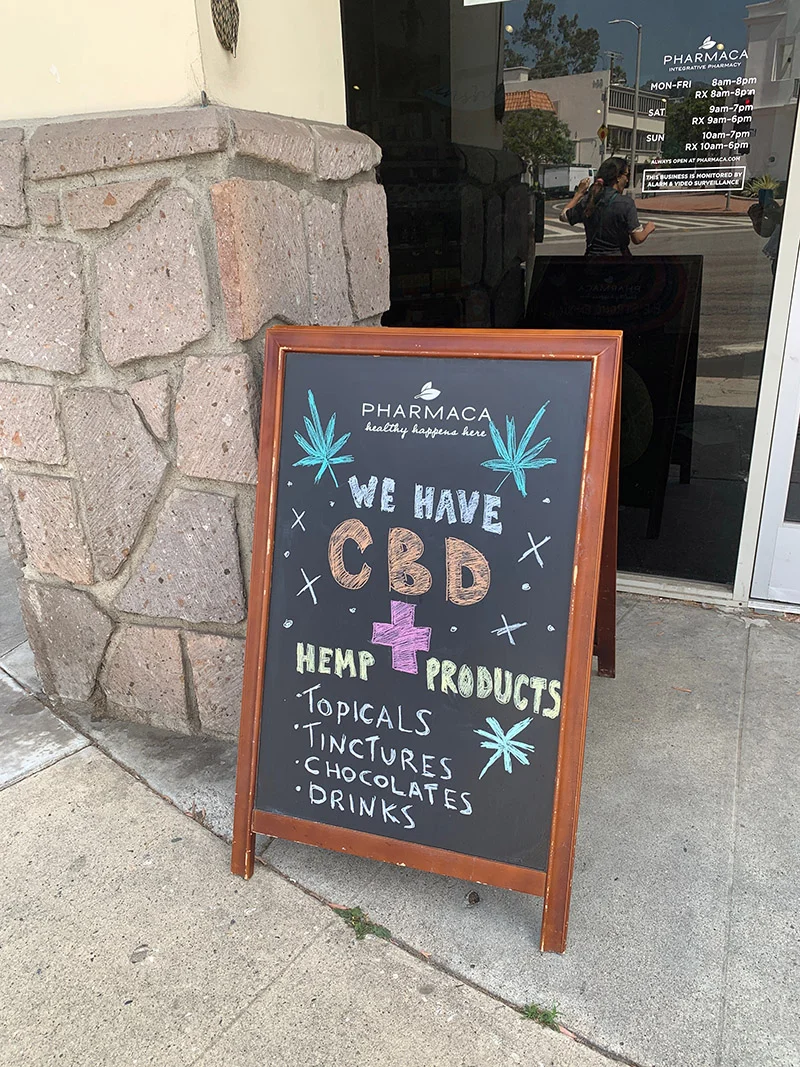 PHARMACA
INTEGRATIVE PHARMACY
MON-FRI 8am-8pm
RX 8am-8pm
SAT 9am-7pm
RX 9am-6pm
SUN 10am-7pm
RX 10am-6pm
ALWAYS OPEN AT PHARMACA.COM
THIS BUSINESS IS MONITORED BY
ALARM & VIDEO SURVEILLANCE
PHARMACA
healthy happens here
WE HAVE
CBD
+
HEMP PRODUCTS
· TOPICALS
· TINCTURES
· CHOCOLATES
· DRINKS